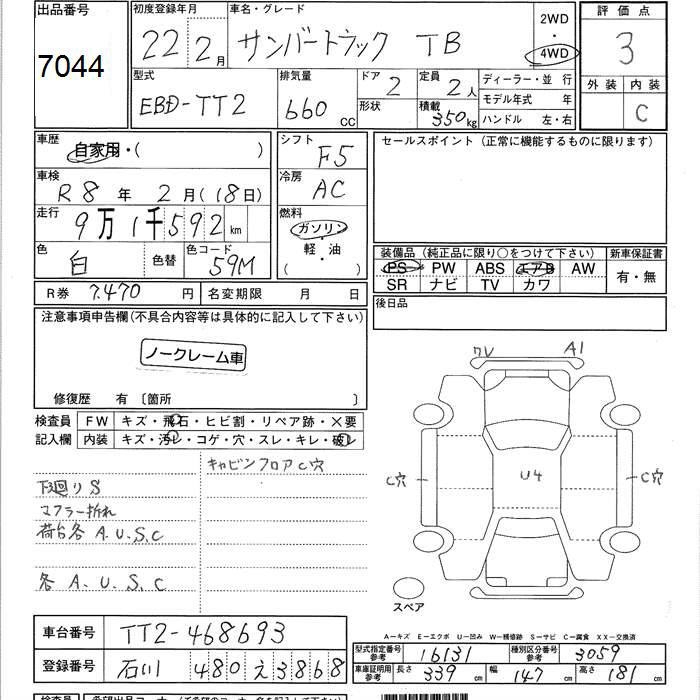 出品番号
7044
初度登録年月
22 2月
車名・グレード
サンバートラック TB
2WD
・
4WD
評価点
3
外装 内装
C
型式
EBD-TT2
排気量
660 CC
ドア
2
形状
定員
2人
積載
350kg
ディーラー・並 行
モデル年式 年
ハンドル 左・右
車歴
自家用・( )
車検
R8年 2月(18日)
走行
9万1千592km
色
白
色替
色コード
59M
シフト
F5
冷房
AC
燃料
ガソリン
・
軽・油
( )
セールスポイント(正常に機能するものに限ります)
装備品(純正品に限り○をつけて下さい)
PS PW ABS エアB AW
SR ナビ TV カワ
新車保証書
有・無
R券 7.470円
名変期限 月 日
後日品
注意事項申告欄(不具合内容等は具体的に記入して下さい)
ノークレーム車
修復歴 有〔箇所 〕
検査員
記入欄
FW キズ・飛石・ヒビ割・リペア跡・×要
内装 キズ・汚レ・コゲ・穴・スレ・キレ・破レ
キャビンフロアC穴
下廻りS
マフラー折れ
荷台各 A.U.S.C
各 A.U.S.C
ワV A1
C穴 U4 C穴
スペア
A−キズ E−エクボ U−凹み W−補修跡 S−サビ C−腐食 XX−交換済
車台番号 TT2-468693
登録番号 石川 480 え 3868
型式指定番号
参考
16131
種別区分番号
参考
3059
車庫証明用
参考
長さ 339cm 幅 147cm 高さ 181cm